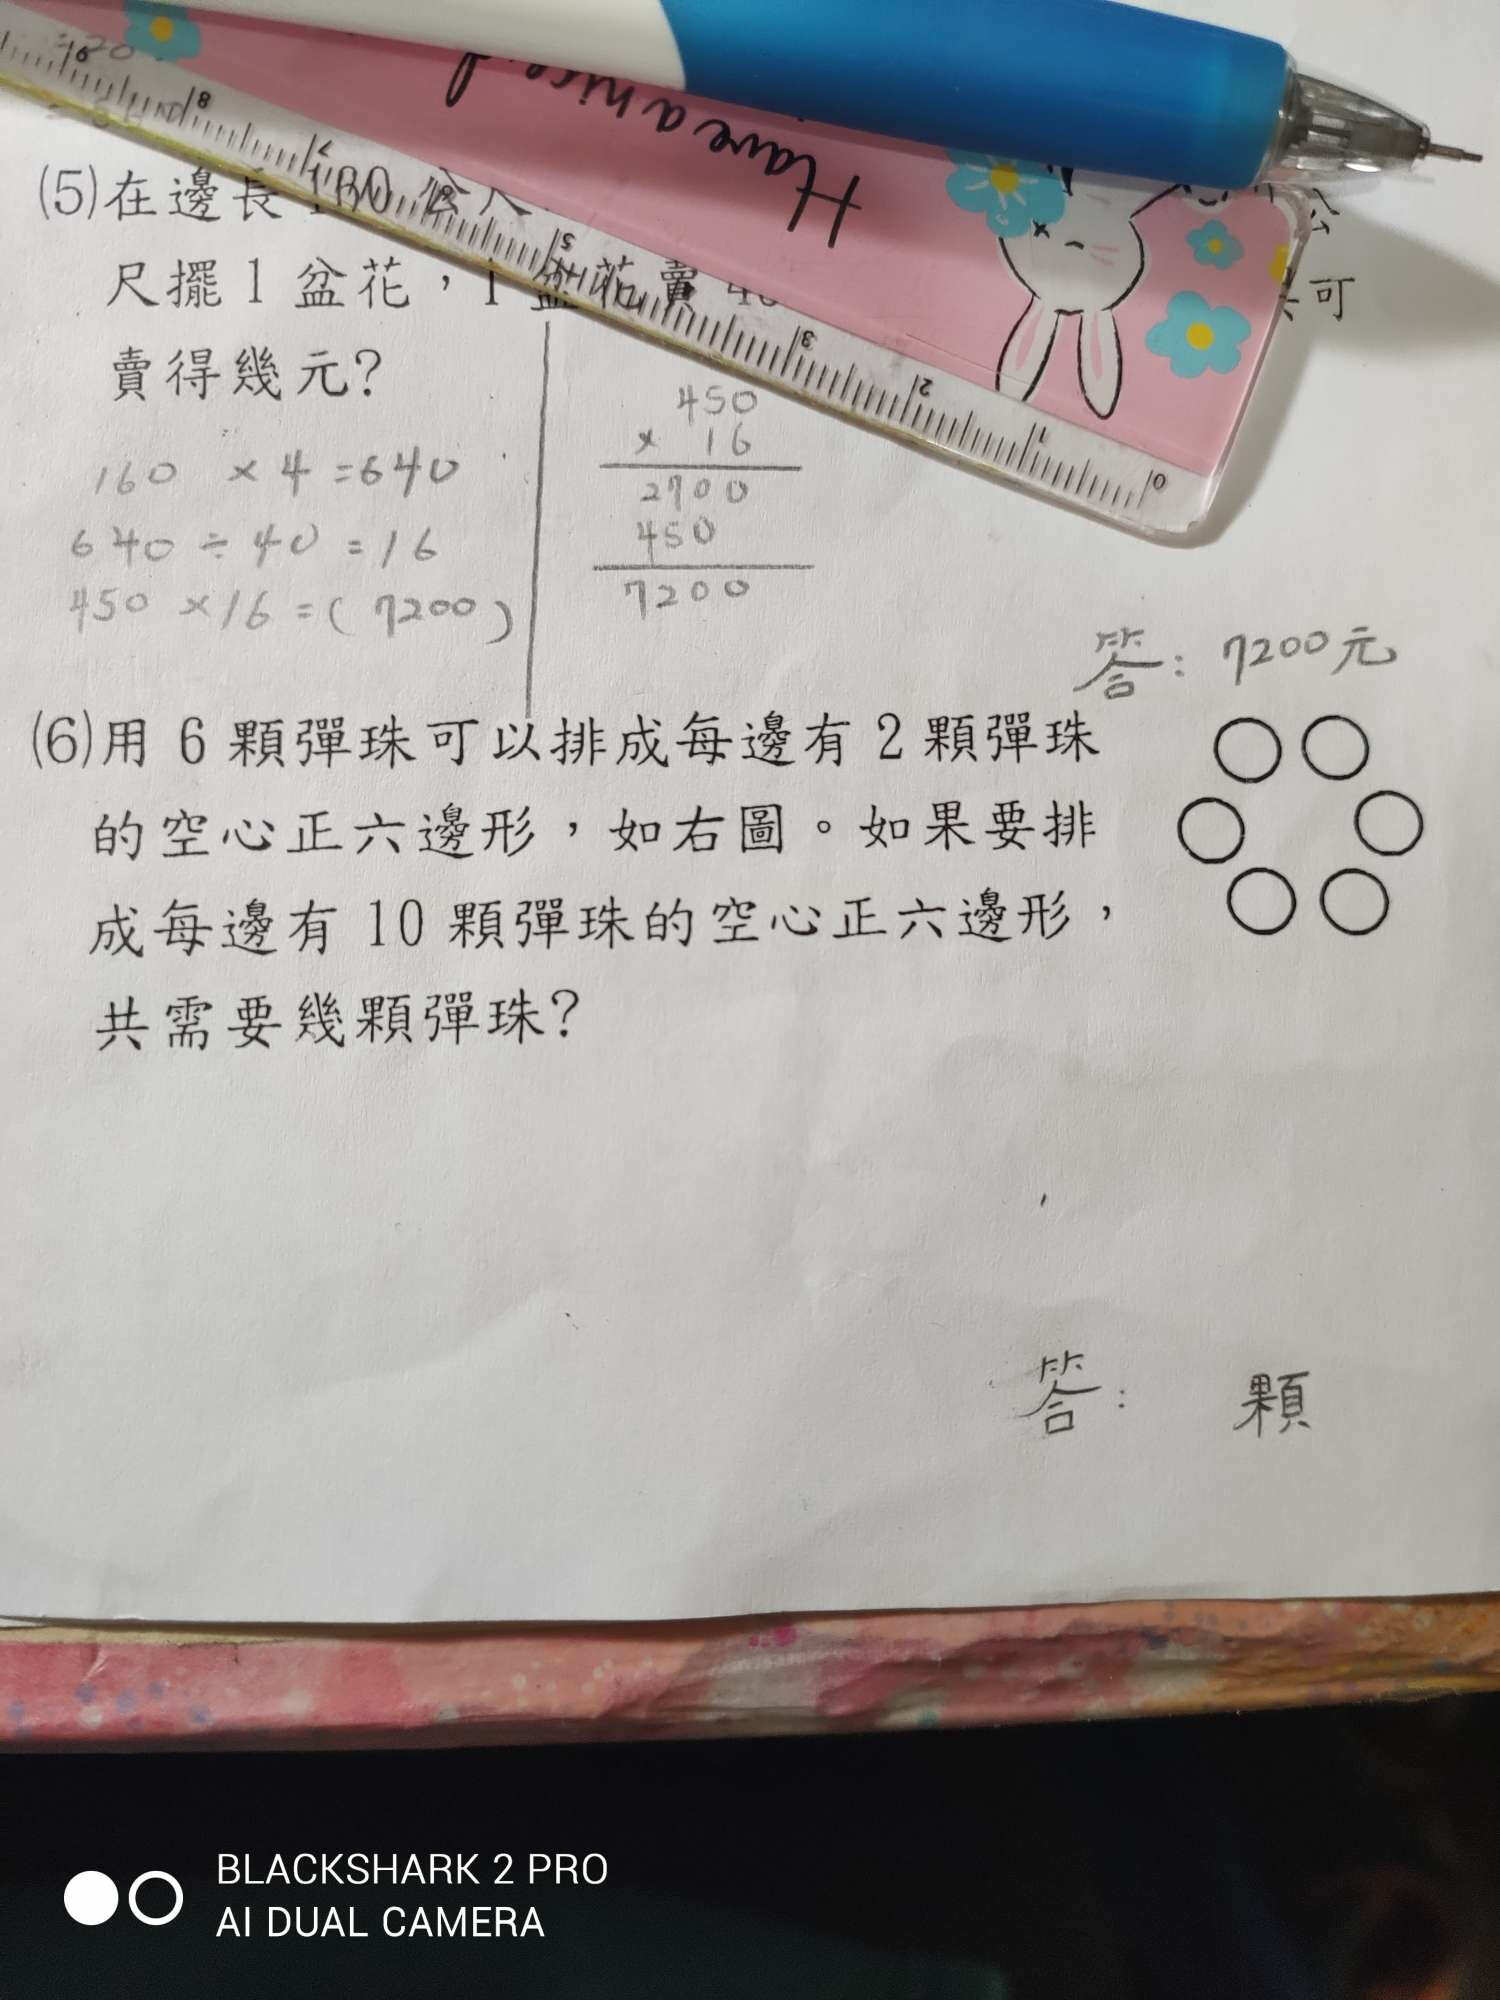 Have a nice d
9 8 7 6 5 3 2 1 0
(5)在邊長160公尺
公
尺擺1盆花，1盆花賣4
可
賣得幾元?
160 × 4 = 640
640 ÷ 40 = 16
450 × 16 = ( 7200 )
450
× 16
2700
450
7200
答: 7200元
(6)用 6 顆彈珠可以排成每邊有 2 顆彈珠
的空心正六邊形，如右圖。如果要排
成每邊有 10 顆彈珠的空心正六邊形，
共需要幾顆彈珠?
答: 顆
BLACKSHARK 2 PRO
AI DUAL CAMERA